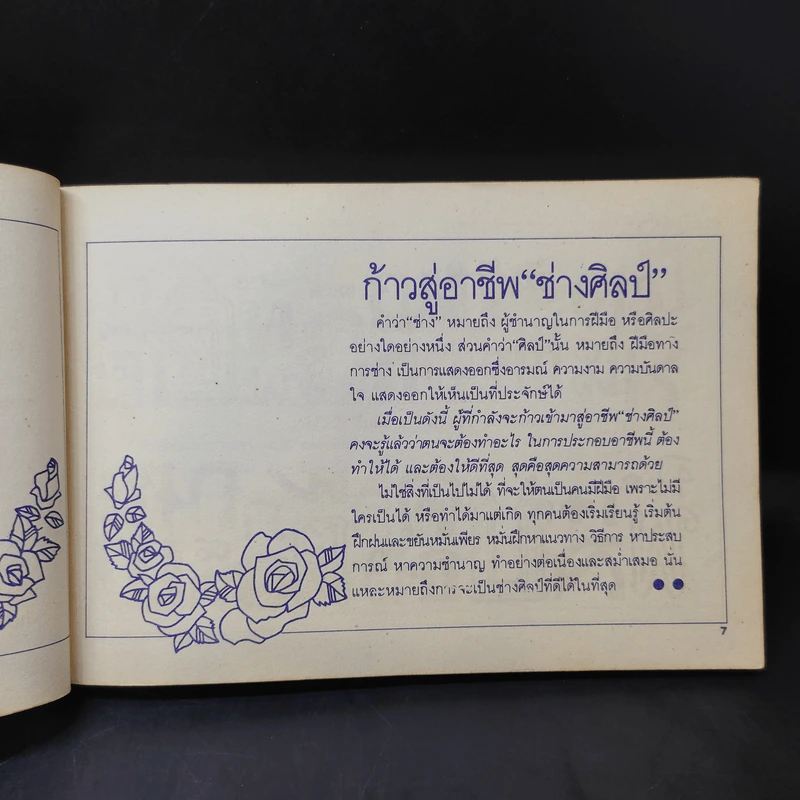 ก้าวสู่อาชีพ“ช่างศิลป์”
คำว่า“ช่าง” หมายถึง ผู้ชำนาญในการฝีมือ หรือศิลปะ
อย่างใดอย่างหนึ่ง ส่วนคำว่า“ศิลป์”นั้น หมายถึง ฝีมือทาง
การช่าง เป็นการแสดงออกซึ่งอารมณ์ ความงาม ความบันดาล
ใจ แสดงออกให้เห็นเป็นที่ประจักษ์ได้
เมื่อเป็นดังนี้ ผู้ที่กำลังจะก้าวเข้ามาสู่อาชีพ“ช่างศิลป์”
คงจะรู้แล้วว่าตนจะต้องทำอะไร ในการประกอบอาชีพนี้ ต้อง
ทำให้ได้ และต้องให้ดีที่สุด สุดคือสุดความสามารถด้วย
ไม่ใช่สิ่งที่เป็นไปไม่ได้ ที่จะให้ตนเป็นคนมีฝีมือ เพราะไม่มี
ใครเป็นได้ หรือทำได้มาแต่เกิด ทุกคนต้องเริ่มเรียนรู้ เริ่มต้น
ฝึกฝนและขยันหมั่นเพียร หมั่นฝึกหาแนวทาง วิธีการ หาประสบ
การณ์ หาความชำนาญ ทำอย่างต่อเนื่องและสม่ำเสมอ นั่น
แหละหมายถึงการจะเป็นช่างศิลป์ที่ดีได้ในที่สุด
7